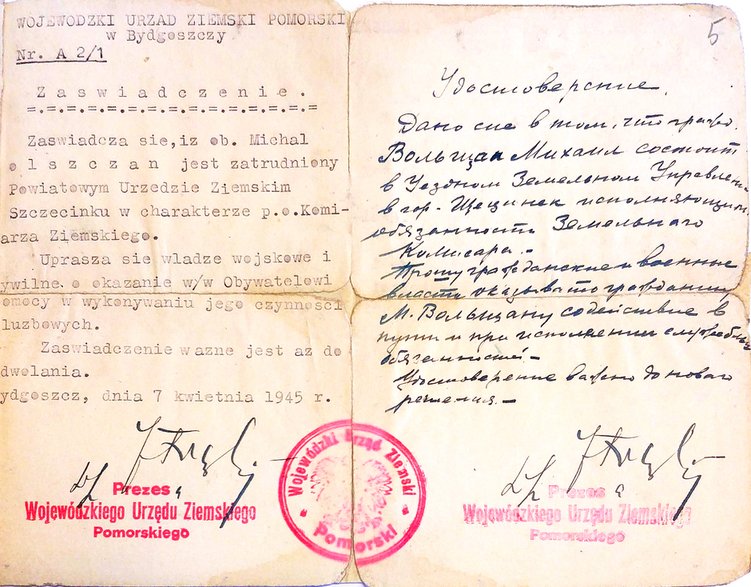 WOJEWODZKI URZAD ZIEMSKI POMORSKI
w Bydgoszczy
Nr. A 2/1
Zaswiadczenie.
=.=.=.=.=.=.=.=.=.=.=.=.=.=
Zaswiadcza sie, iz ob. Michal
olszczan jest zatrudniony
Powiatowym Urzedzie Ziemskim
Szczecinku w charakterze p.o.Komi-
arza Ziemskiego.
Uprasza sie wladze wojskowe i
ywilne o okazanie w/w Obywatelowi
omocy w wykonywaniu jego czynnosci
luzbowych.
Zaswiadczenie wazne jest az do
dwolania.
ydgoszcz, dnia 7 kwietnia 1945 r.
Prezes
Wojewódzkiego Urzędu Ziemskiego
Pomorskiego
Wojewódzki Urząd Ziemski
Pomorski
5
Удостоверение.
Дано сие в том, что граж.
Вольщан Михаил состоит
в Уездном Земельном Управлени
в гор. Щецинек исполняющим
обязанности Земельного
Комисара.-
Прошу гражданские и военные
власти оказывать гражданину
М. Вольщану содействие в
пути и при исполнении служебных
обязанностей-
Удостоверение важно до нового
решения.-
Prezes
Wojewódzkiego Urzędu Ziemskiego
Pomorskiego